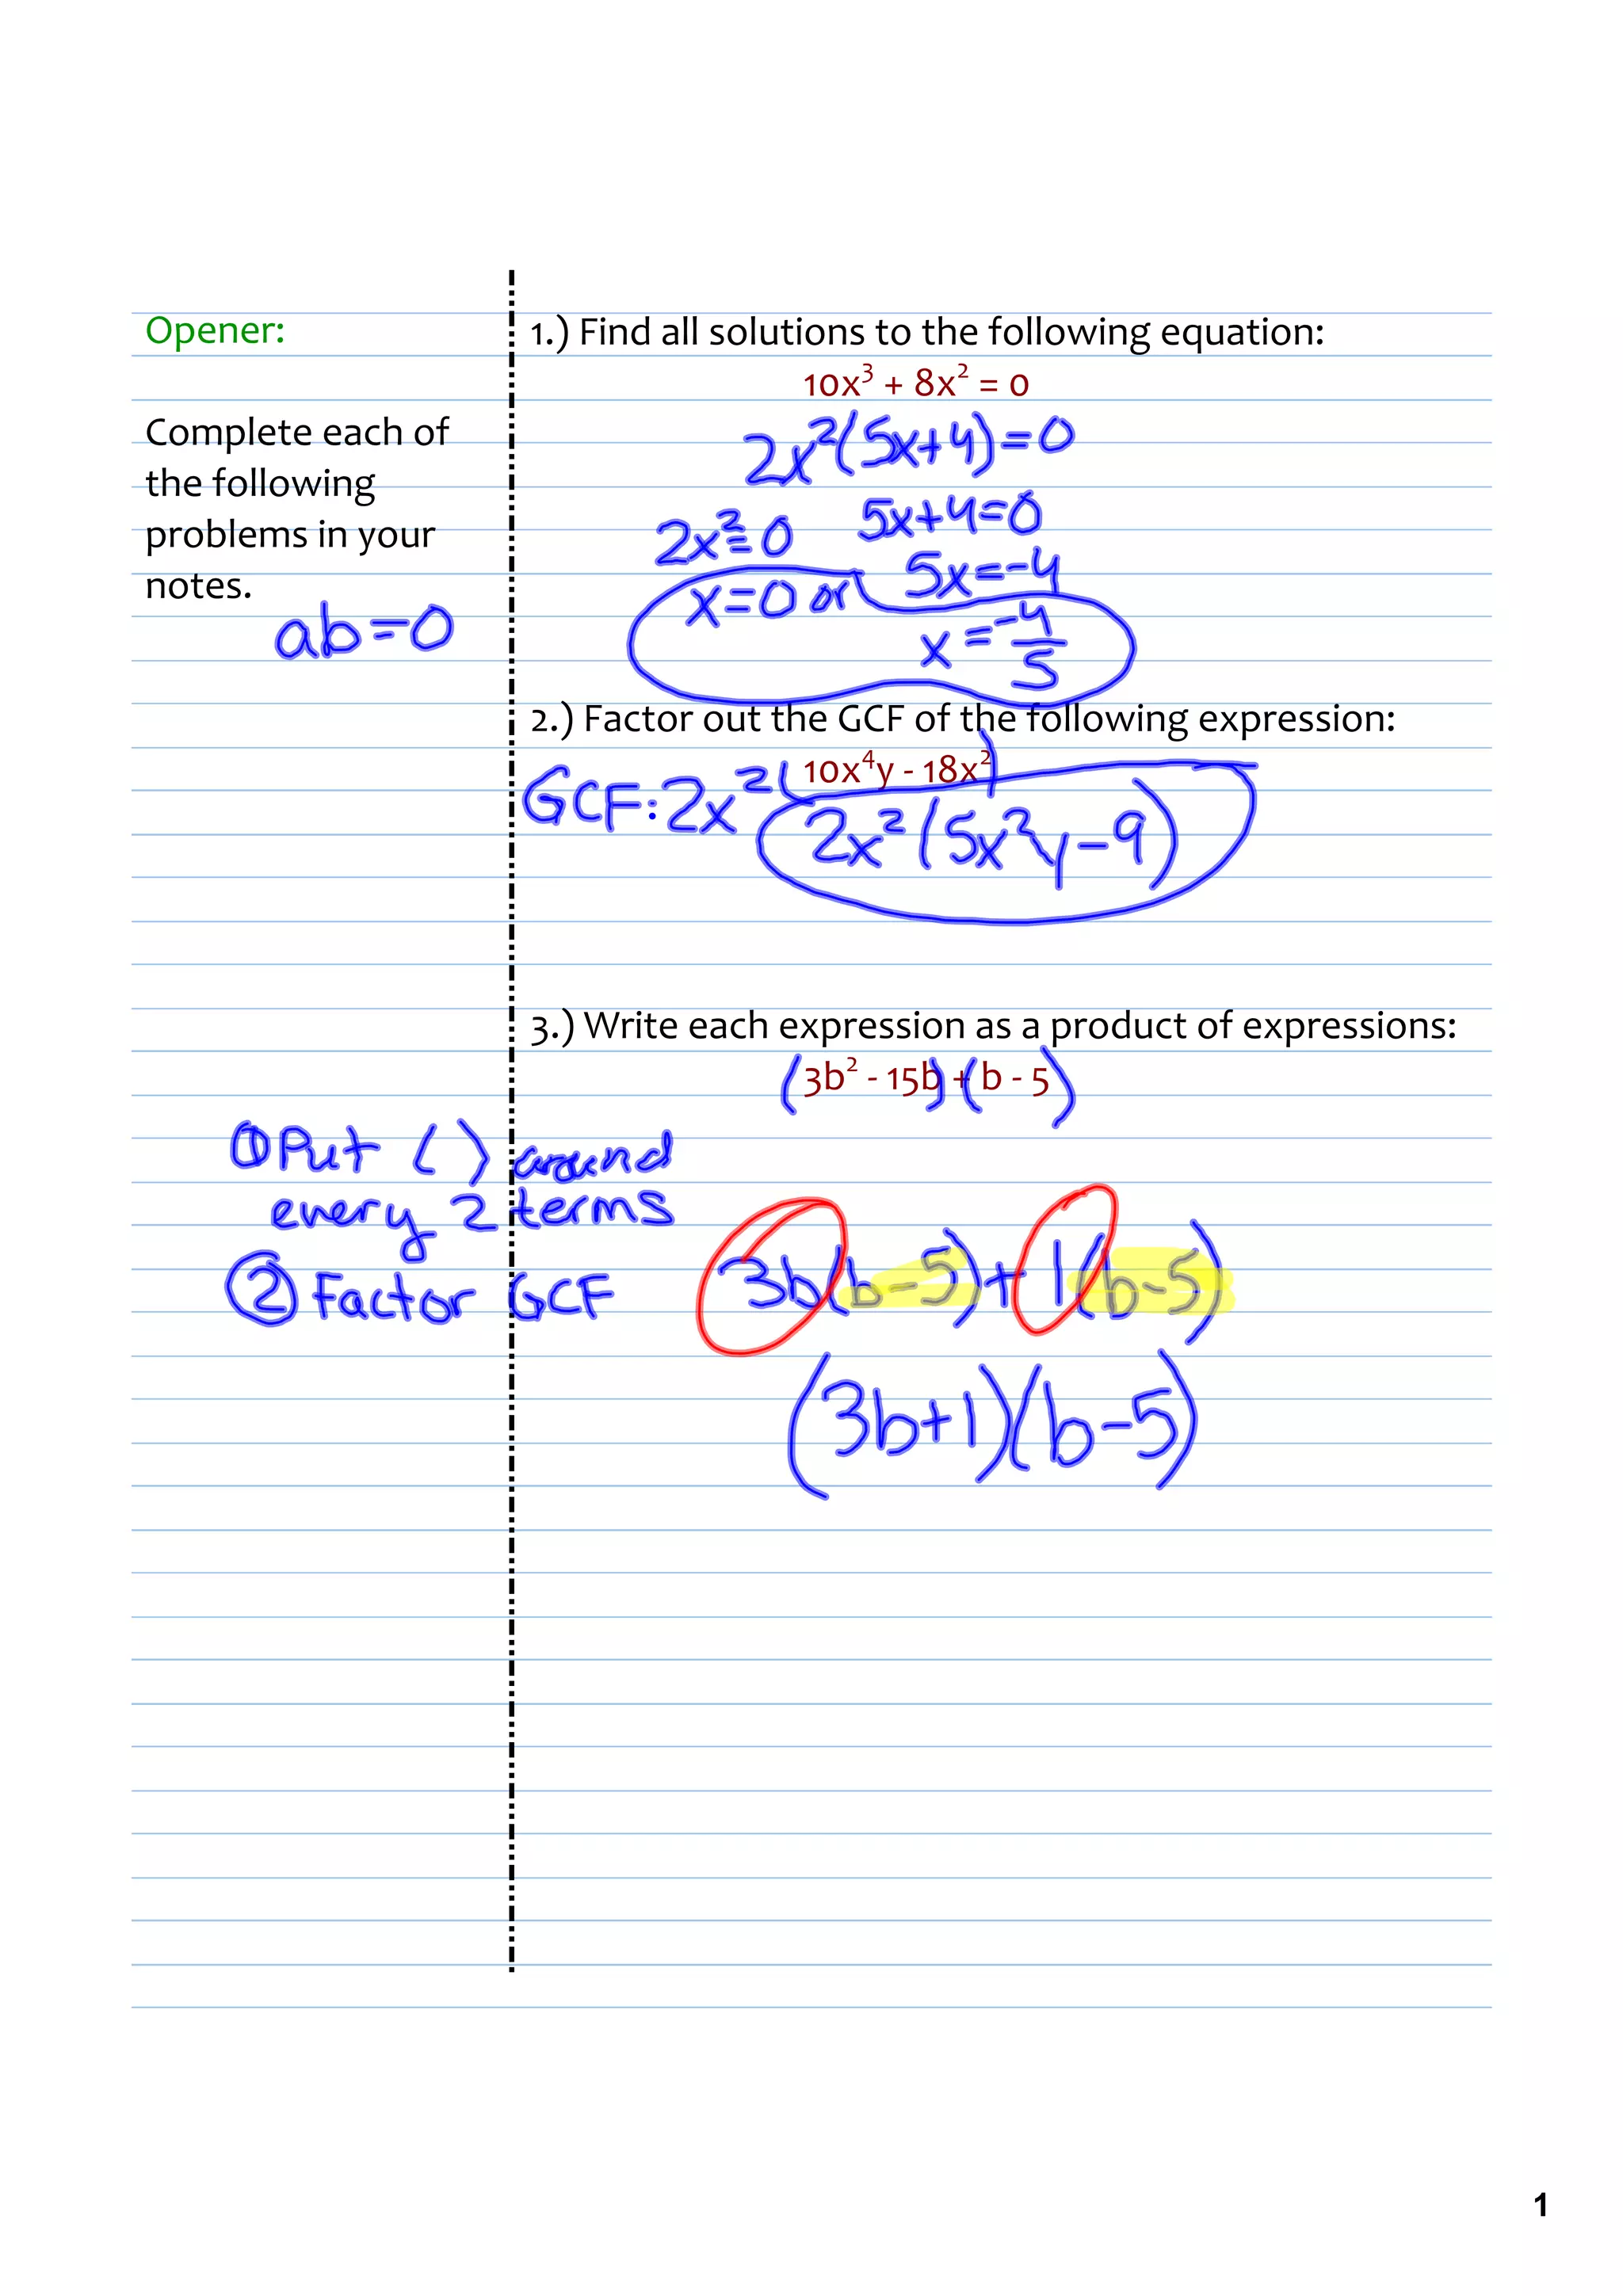 Opener:
Complete each of
the following
problems in your
notes.
ab=0
1.) Find all solutions to the following equation:
10x³ + 8x² = 0
2x²(5x+4)=0
2x²=0 5x+4=0
5x=-4
x=0 or
x=-4/5
2.) Factor out the GCF of the following expression:
(10x⁴y - 18x²)
GCF:2x²
2x²(5x²y-9)
3.) Write each expression as a product of expressions:
(3b² - 15b) + (b - 5)
①Put ( ) around
every 2 terms
② Factor GCF
3b(b-5)+1(b-5)
(3b+1)(b-5)
1